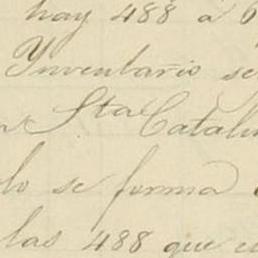 hay 488 a 6
Ynventario se
Sta Catali
lo se forma
las 488 que e